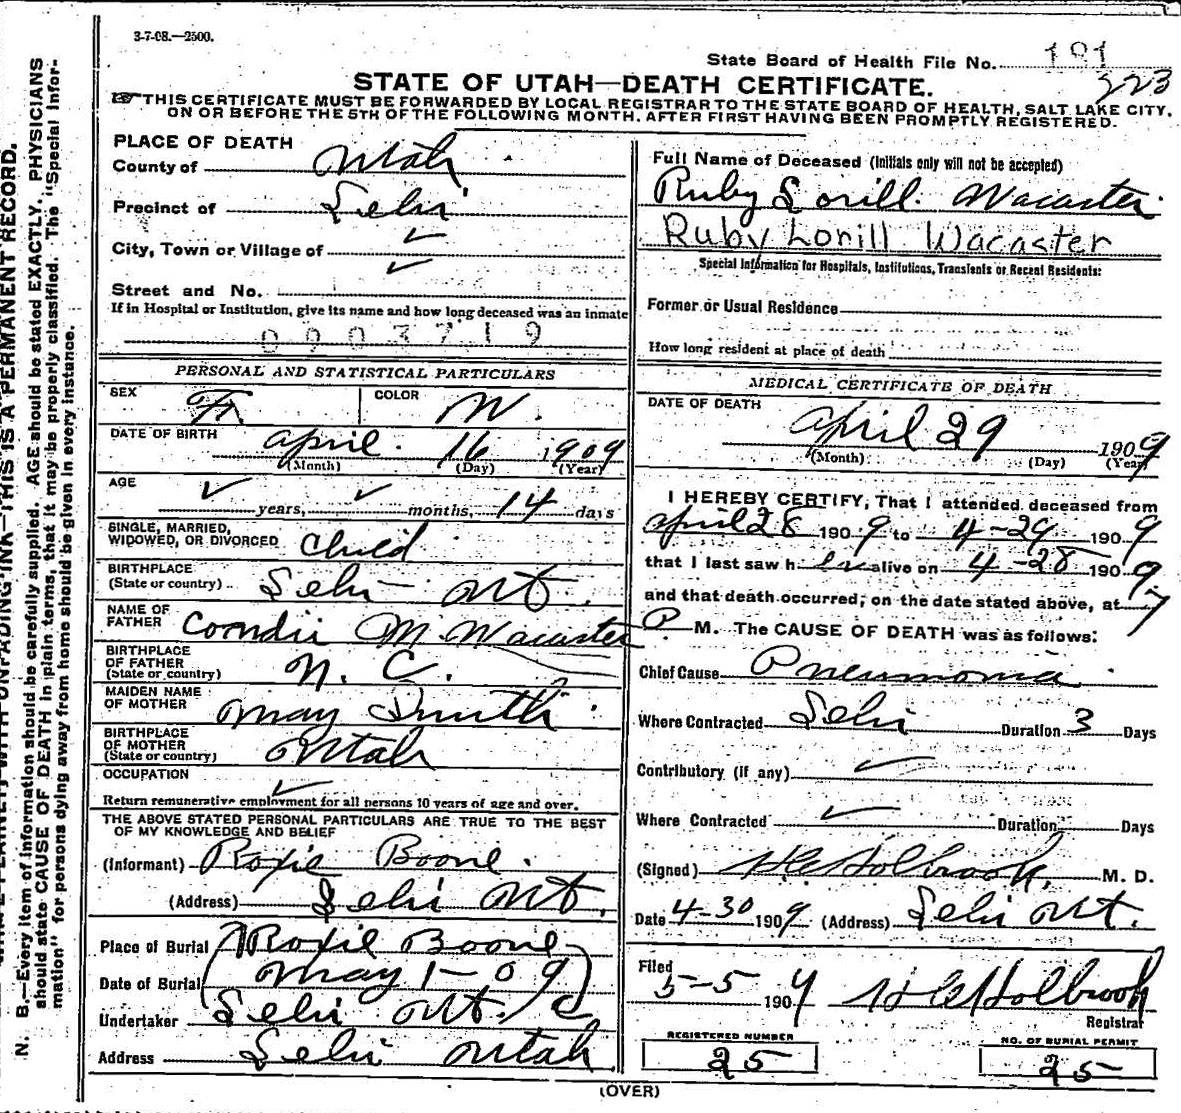 3-7-08.—2500.
State Board of Health File No. 191
223
STATE OF UTAH—DEATH CERTIFICATE.
☞ THIS CERTIFICATE MUST BE FORWARDED BY LOCAL REGISTRAR TO THE STATE BOARD OF HEALTH, SALT LAKE CITY,
ON OR BEFORE THE 5TH OF THE FOLLOWING MONTH, AFTER FIRST HAVING BEEN PROMPTLY REGISTERED.
PLACE OF DEATH
County of Utah
Precinct of Lehi
City, Town or Village of ✓
Street and No. ✓
If in Hospital or Institution, give its name and how long deceased was an inmate
0003719
PERSONAL AND STATISTICAL PARTICULARS
SEX F. COLOR W.
DATE OF BIRTH April 16 1909
(Month) (Day) (Year)
AGE
✓ years, ✓ months, 14 days
SINGLE, MARRIED,
WIDOWED, OR DIVORCED Child
BIRTHPLACE
(State or country) Lehi - Ut.
NAME OF
FATHER M. Wacaster
BIRTHPLACE
OF FATHER
(State or country) N. C.
MAIDEN NAME
OF MOTHER May Smith
BIRTHPLACE
OF MOTHER
(State or country) Utah
OCCUPATION ✓
Return remunerative employment for all persons 10 years of age and over.
THE ABOVE STATED PERSONAL PARTICULARS ARE TRUE TO THE BEST
OF MY KNOWLEDGE AND BELIEF
(Informant) Roxie Boone.
(Address) Lehi Ut.
Place of Burial Roxie Boone
Date of Burial May 1-09
Undertaker Lehi Ut.
Address Lehi Utah
Full Name of Deceased (Initials only will not be accepted)
Ruby Lorill Wacaster
Ruby Lorill Wacaster
Special Information for Hospitals, Institutions, Transients or Recent Residents:
Former or Usual Residence
How long resident at place of death
MEDICAL CERTIFICATE OF DEATH
DATE OF DEATH
April 29 1909
(Month) (Day) (Year)
I HEREBY CERTIFY, That I attended deceased from
April 28 1909 to 4-29 1909
that I last saw her alive on 4-28 1909
and that death occurred, on the date stated above, at 7
P. M. The CAUSE OF DEATH was as follows:
Chief Cause Pneumonia
Where Contracted Lehi Duration 3 Days
Contributory (if any) ✓
Where Contracted ✓ Duration Days
(Signed) Holbrook, M. D.
Date 4-30 1909 (Address) Lehi Ut.
Filed
5-5 1909 Holbrook
Registrar
REGISTERED NUMBER
25
NO. OF BURIAL PERMIT
25
(OVER)
N. B.—Every item of information should be carefully supplied. AGE should be stated EXACTLY. PHYSICIANS
should state CAUSE OF DEATH in plain terms, that it may be properly classified. The "Special Infor-
mation" for persons dying away from home should be given in every instance.
UNFADING INK—THIS IS A PERMANENT RECORD.